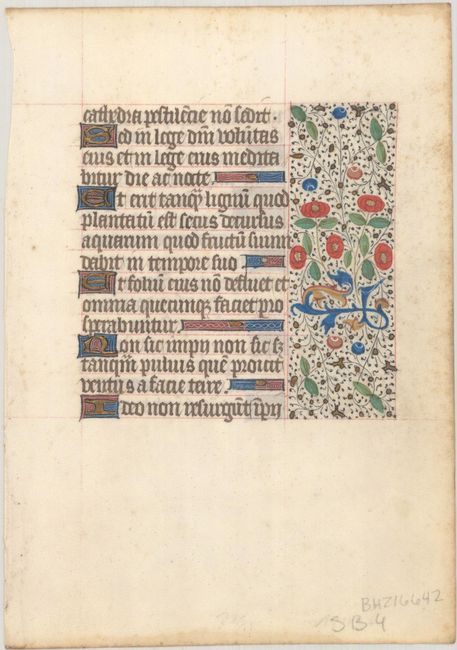 cathedra pestilẽcie nõ sedit.
Sed in lege dñi voluntas
eius et in lege eius medita
bitur die ac nocte.
Et erit tanq̃ lignũ quod
plantatũ est secus decursus
aquarum quod fructũ suum
dabit in tempore suo
Et foliũ eius nõ defluet et
omnia quecunqꝫ faciet pro
sperabuntur.
Non sic impii non sic sꝫ
tanq̃m puluis quẽ proicit
ventus a facie terre.
Ideo non resurgũt ĩpii
BHZ16642
SB-4